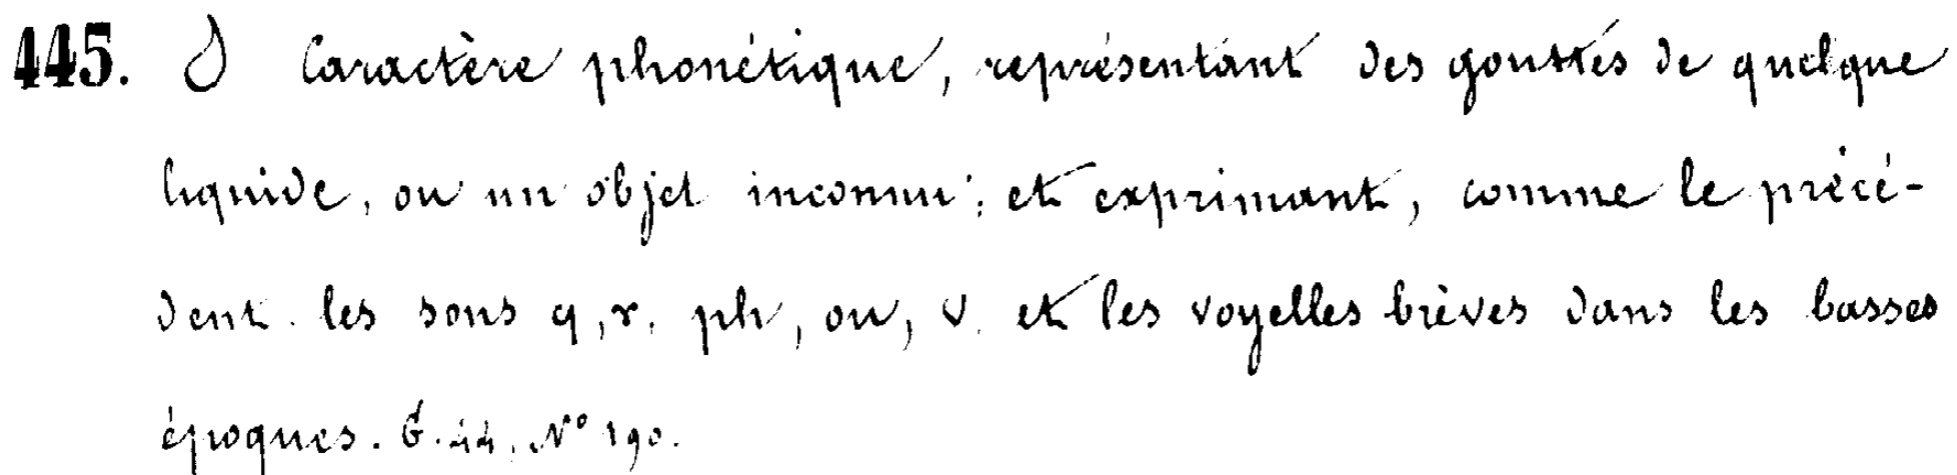 445. Caractère phonétique, représentant des gouttes de quelque
liquide, ou un objet inconnu; et exprimant, comme le précé-
dent les sons q, r, ph, ou, v. et les voyelles brèves dans les basses
époques. N° 190.